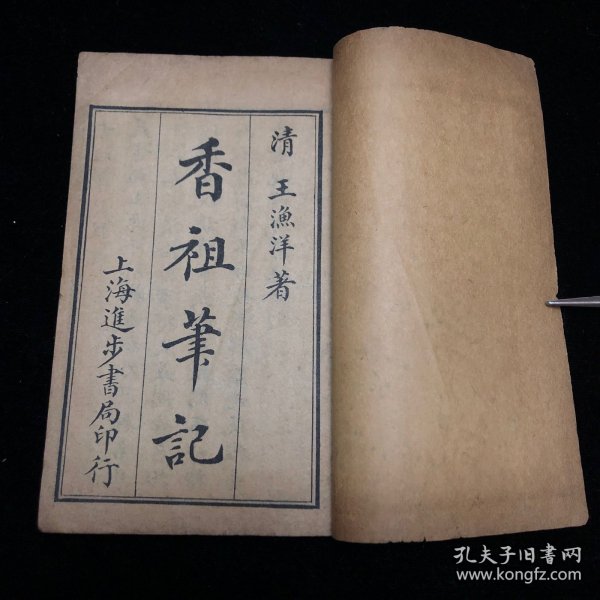 清 王漁洋著
香祖筆記
上海進步書局印行
孔夫子旧书网
www.kongfz.com